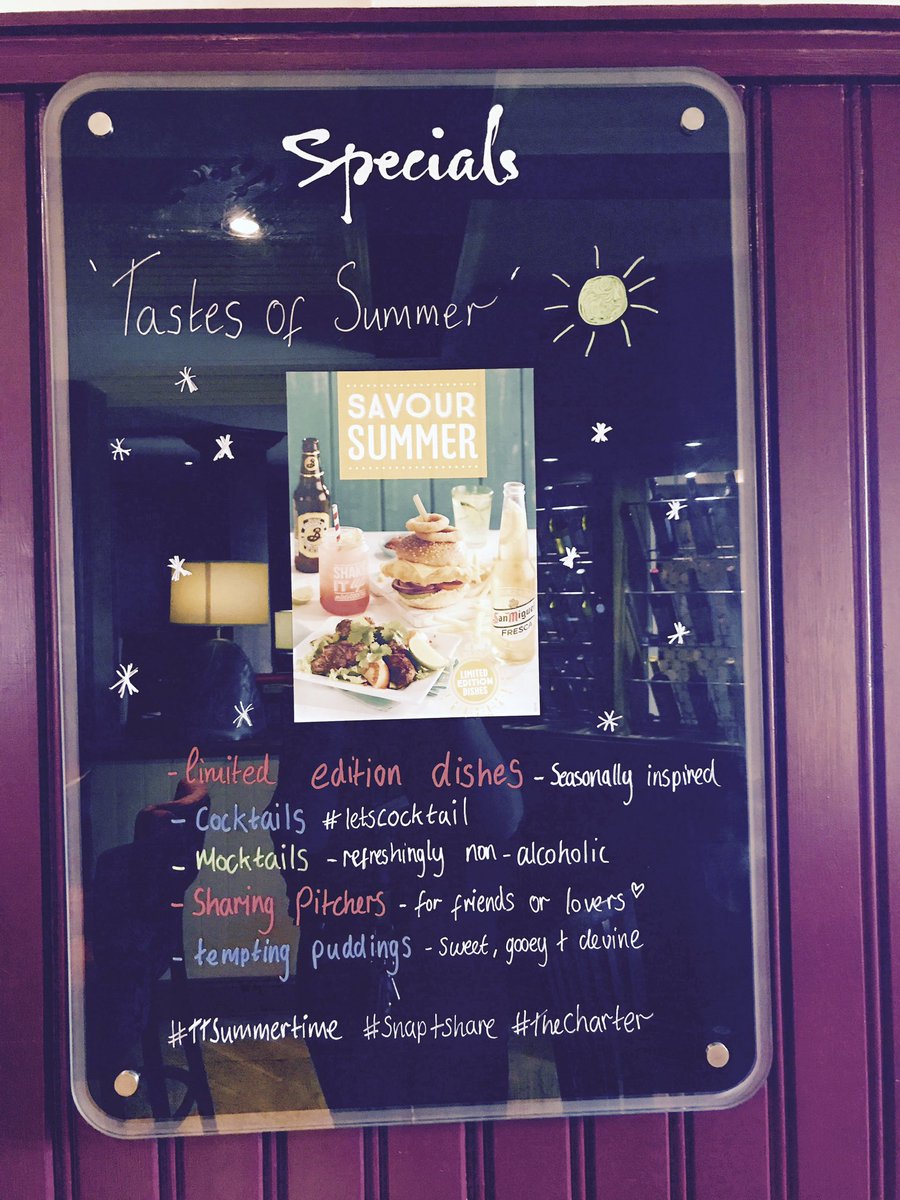 Specials
'Tastes of Summer'
SAVOUR
SUMMER
SHAKE
IT up
San Miguel
FRESCA
LIMITED
EDITION
DISHES
- limited edition dishes - Seasonally inspired
- Cocktails #letscocktail
- Mocktails - refreshingly non-alcoholic
- Sharing Pitchers - for friends or lovers ♡
- tempting puddings - sweet, gooey + devine
#TTSummertime #Snap+share #TheCharter